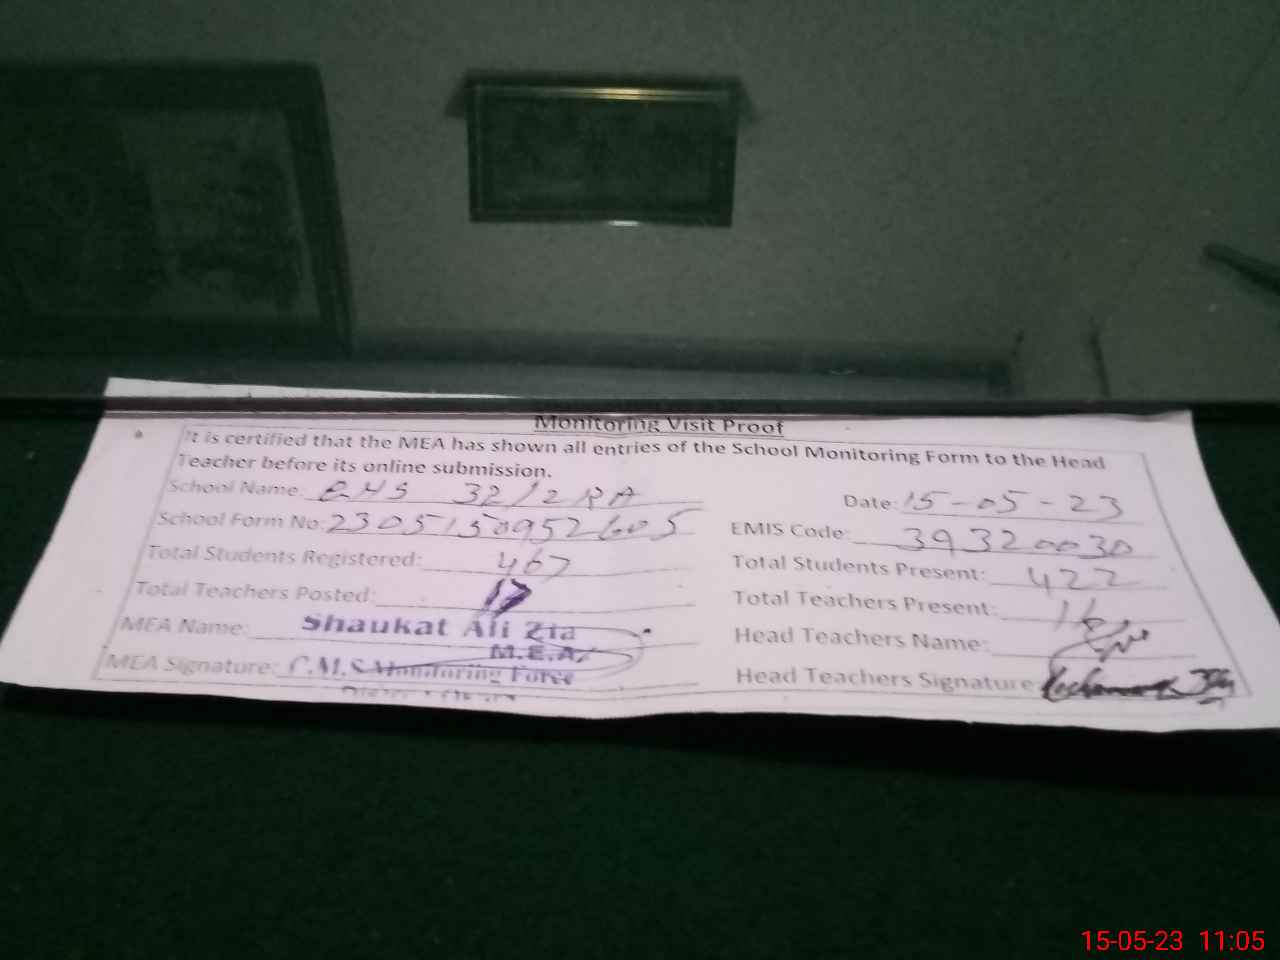 Monitoring Visit Proof
It is certified that the MEA has shown all entries of the School Monitoring Form to the Head
Teacher before its online submission.
School Name: GHS 32/2RA Date: 15-05-23
School Form No: 2305150952605 EMIS Code: 39320030
Total Students Registered: 467 Total Students Present: 422
Total Teachers Posted: 17 Total Teachers Present: 16
MEA Name: Shaukat Ali Zia Head Teachers Name:
M.E.A
MEA Signature: C.M.S Monitoring Force Head Teachers Signature
15-05-23 11:05